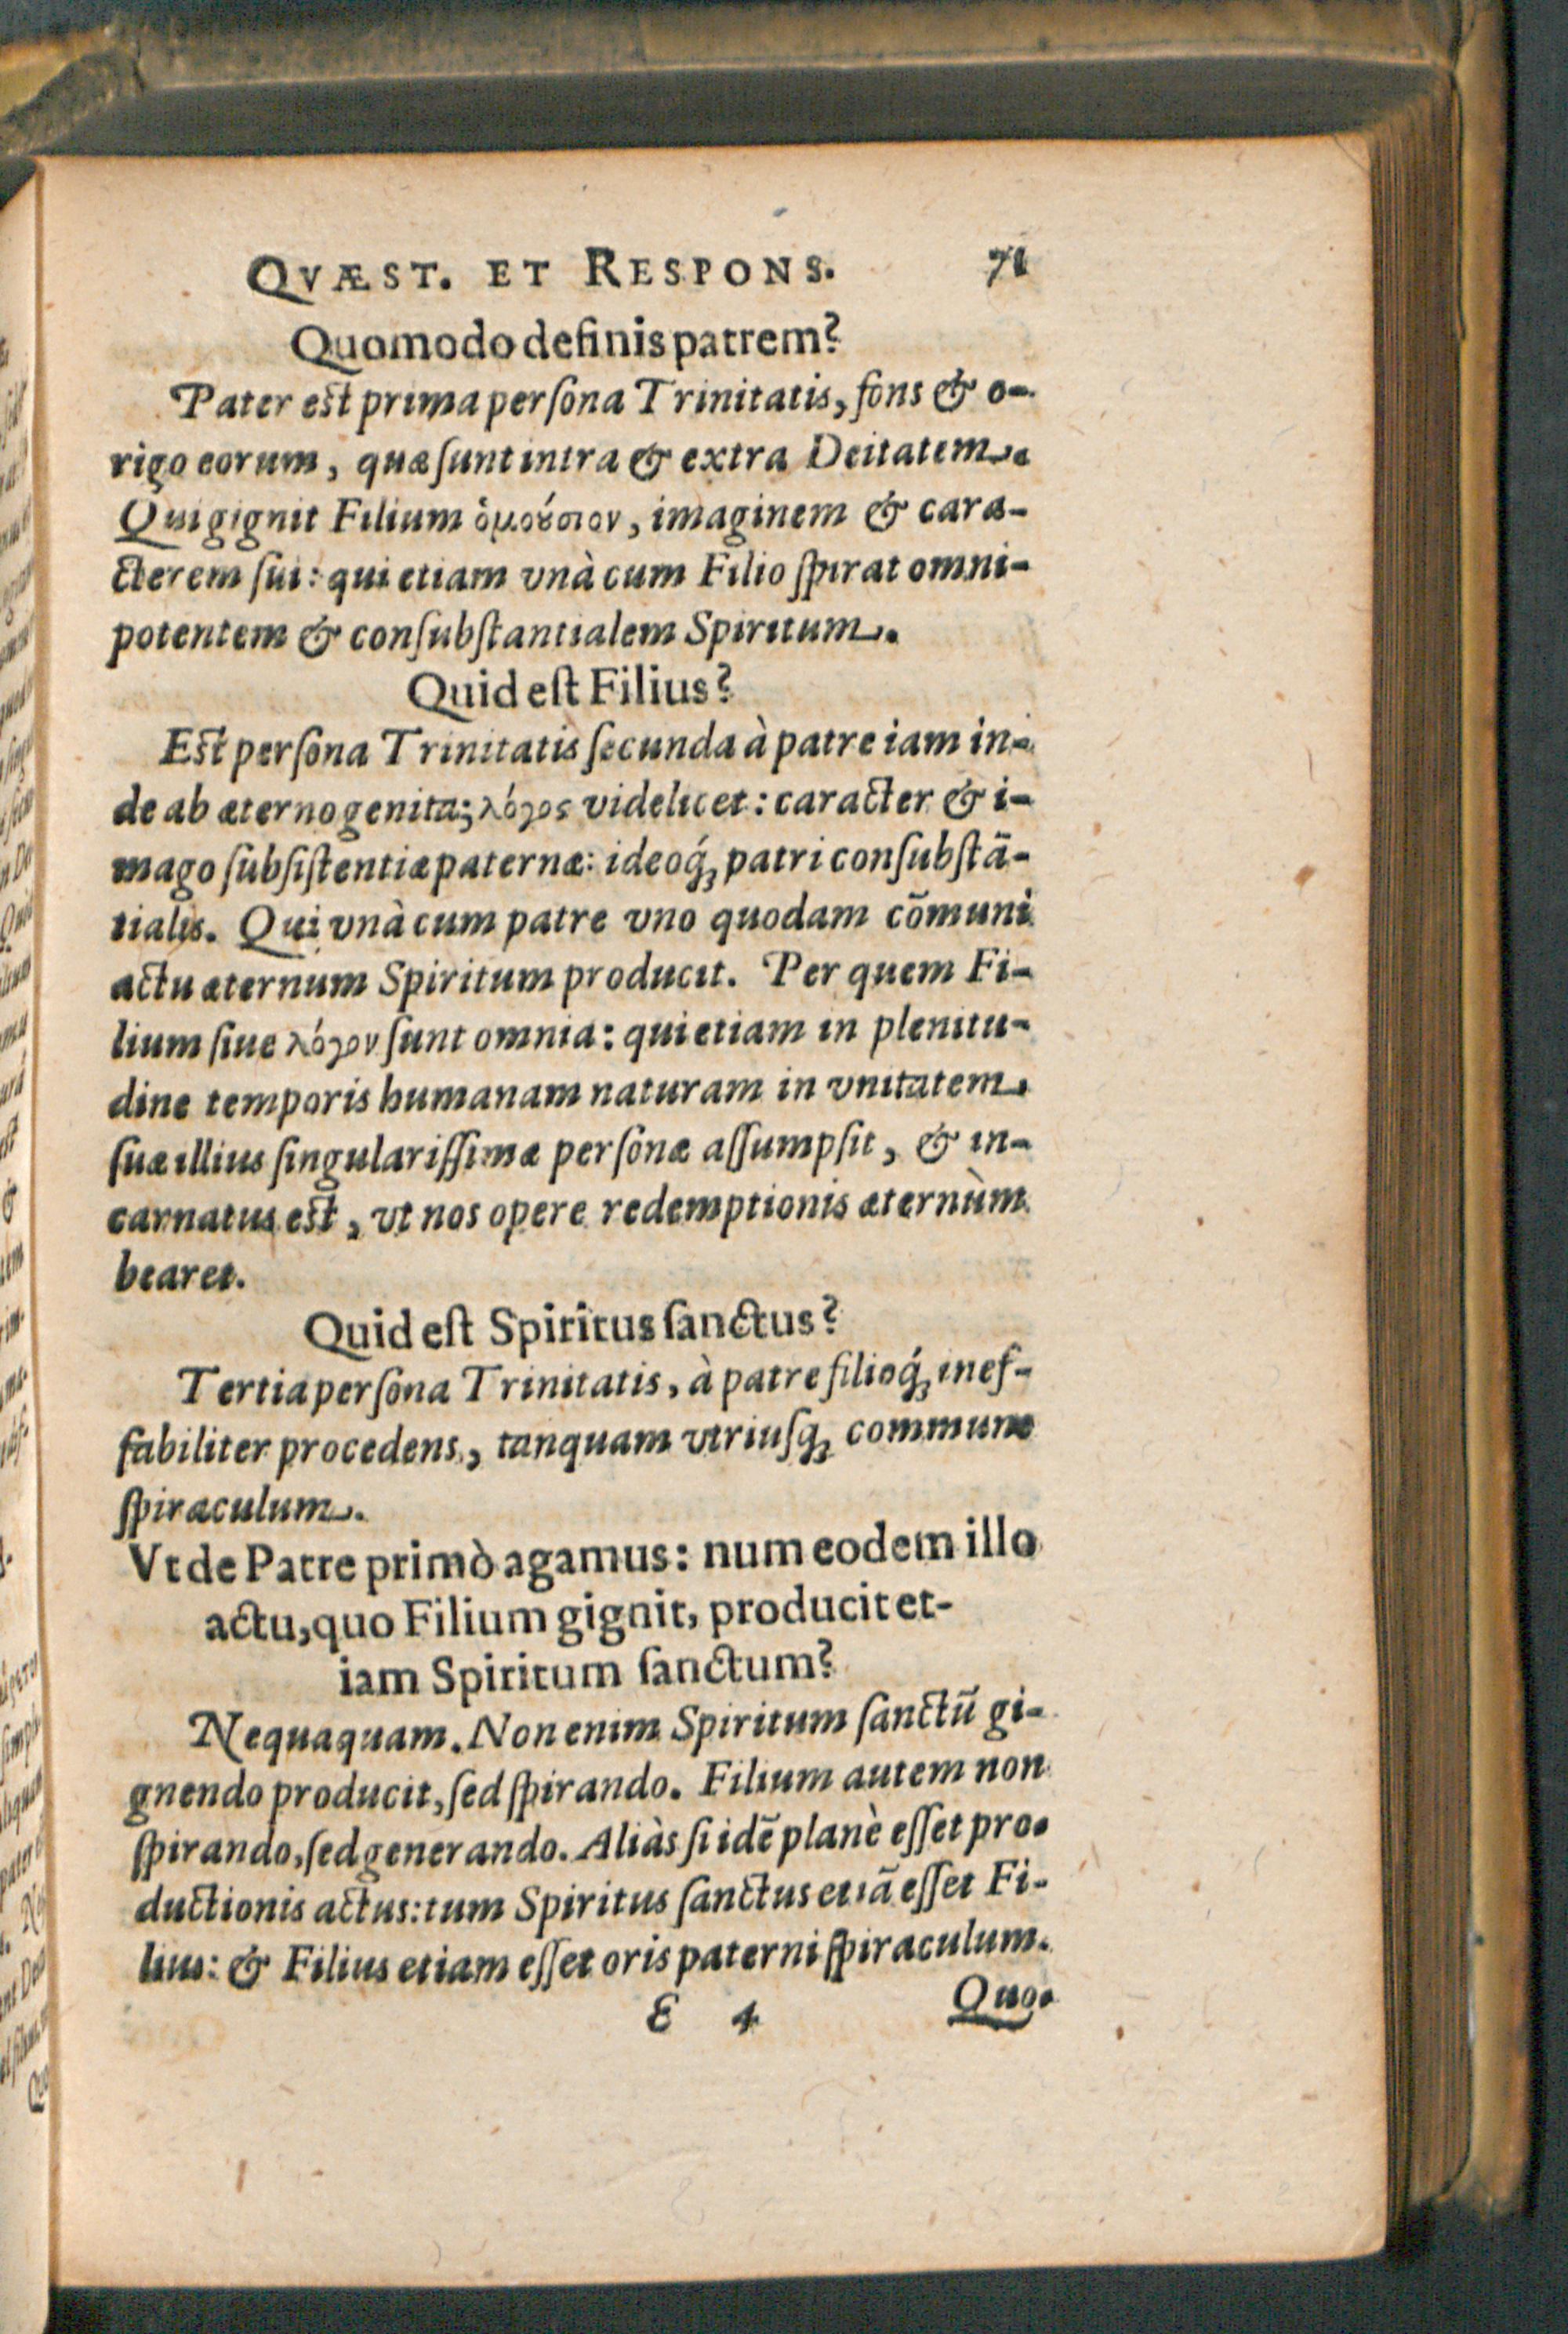 QVÆST. ET RESPONS. 71
Quomodo definis patrem?
Pater est prima perſona Trinitatis, fons & o-
rigo eorum, quæ ſunt intra & extra Deitatem.
Qui gignit Filium ὁμούσιον, imaginem & cara-
cterem ſui: qui etiam vnà cum Filio ſpirat omni-
potentem & conſubſtantialem Spiritum.
Quid eſt Filius?
Est perſona Trinitatis ſecunda à patre iam in-
de ab æterno genita; λόγος videlicet: caracter & i-
mago ſubſiſtentiæ paternæ: ideoq́ꝫ patri conſubſtã-
tialis. Qui vnà cum patre vno quodam cõmuni
actu æternum Spiritum producit. Per quem Fi-
lium ſiue λόγον ſunt omnia: qui etiam in plenitu-
dine temporis humanam naturam in vnitatem
ſuæ illius ſingulariſſimæ perſonæ aſſumpſit, & in-
carnatus est, vt nos opere redemptionis æternùm
bearet.
Quid eſt Spiritus ſanctus?
Tertia perſona Trinitatis, à patre filioq́ꝫ inef-
fabiliter procedens, tanquam vtriuſqꝫ commune
ſpiraculum.
Vt de Patre primò agamus: num eodem illo
actu, quo Filium gignit, producit et-
iam Spiritum ſanctum?
Nequaquam. Non enim Spiritum ſanctũ gi-
gnendo producit, ſed ſpirando. Filium autem non
ſpirando, ſed generando. Aliàs ſi idẽ planè eſſet pro-
ductionis actus: tum Spiritus ſanctus etiã eſſet Fi-
lius: & Filius etiam eſſet oris paterni ſpiraculum.
E 4 Quo-